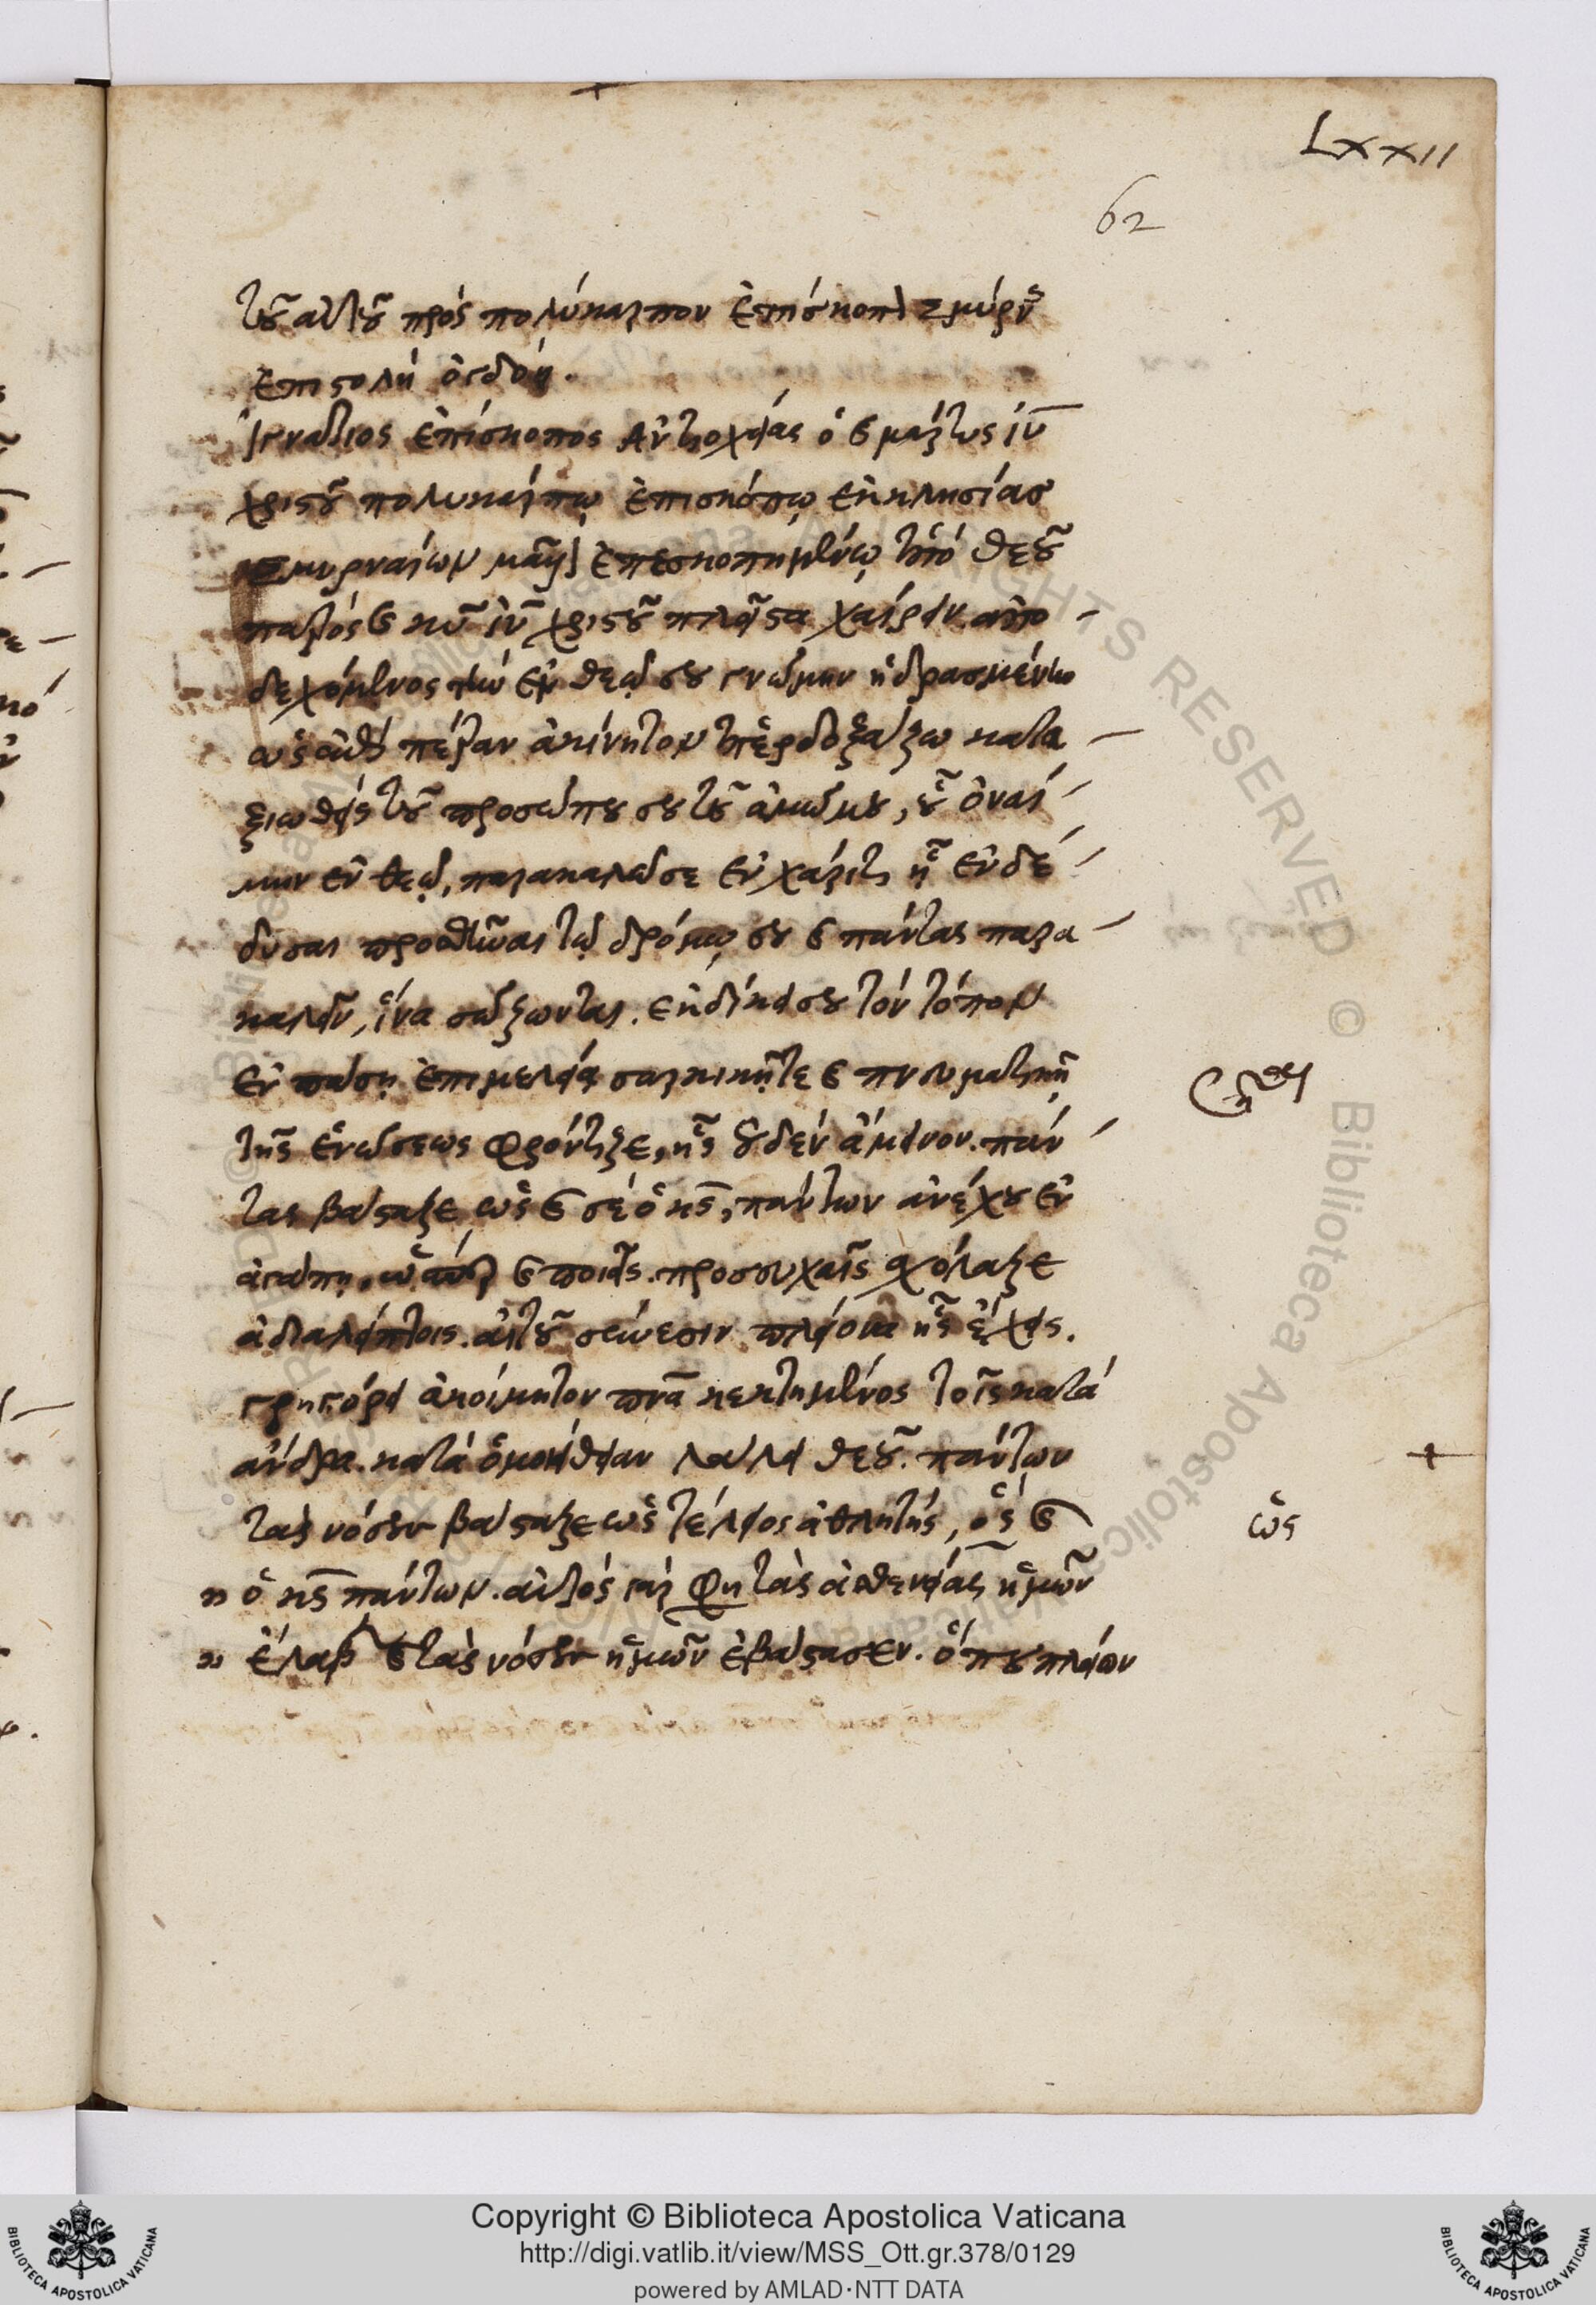 Lxxii
62
τοῦ αὐτοῦ πρὸς πολύκαρπον ἐπίσκοπ σμύρν
ἐπιστολὴ ὀγδόη.
ἰγνάτιος ἐπίσκοπος ἀντιοχείας ὁ καὶ μάρτυς ἰῦ
χριστοῦ πολυκάρπῳ ἐπισκόπῳ ἐκκλησίας
σμυρναίων μᾶλλ ἐπεσκοπημένῳ ὑπὸ θεοῦ
πατρὸς καὶ κυ ἰῦ χριστοῦ πλεῖστα χαίρειν ἀπο-
δεχόμενος τὴν ἐν θεῷ σου γνώμην ἡδρασμένην
ὡς ἐπὶ πέτραν ἀκίνητον ὑπερδοξάζω κατα-
ξιωθεὶς τοῦ προσώπου σου τοῦ ἀμώμου, οὗ ὀναί-
μην ἐν θεῷ, παρακαλῶ σε ἐν χάριτι ᾗ ἐνδέ-
δυσαι προσθεῖναι τῷ δρόμῳ σου καὶ πάντας παρα-
καλεῖν, ἵνα σώζωνται. ἐκδίκει σου τὸν τόπον
ἐν πάσῃ ἐπιμελείᾳ σαρκικῇ τε καὶ πνευματικῇ
τῆς ἑνώσεως φρόντιζε, ἧς οὐδὲν ἄμεινον. πάν-
τας βάσταζε ὡς καὶ σὲ ὁ κς, πάντων ἀνέχου ἐν
ἀγάπῃ, ὥσπερ καὶ ποιεῖς. προσευχαῖς σχόλαζε
ἀδιαλείπτοις. αἰτοῦ σύνεσιν πλείονα ἧς ἔχεις.
γρηγόρει ἀκοίμητον πνα κεκτημένος τοῖς κατὰ
ἄνδρα κατὰ ὁμοήθειαν λάλει θεοῦ. πάντων
τὰς νόσους βάσταζε ὡς τέλειος ἀθλητής, ὃς καὶ
ὡς
ὁ κς πάντων. αὐτὸς γάρ φη τὰς ἀσθενείας ἡμῶν
ἔλαβ καὶ τὰς νόσους ἡμῶν ἐβάστασεν. ὅπου πλείων
Copyright © Biblioteca Apostolica Vaticana
http://digi.vatlib.it/view/MSS_Ott.gr.378/0129
powered by AMLAD·NTT DATA